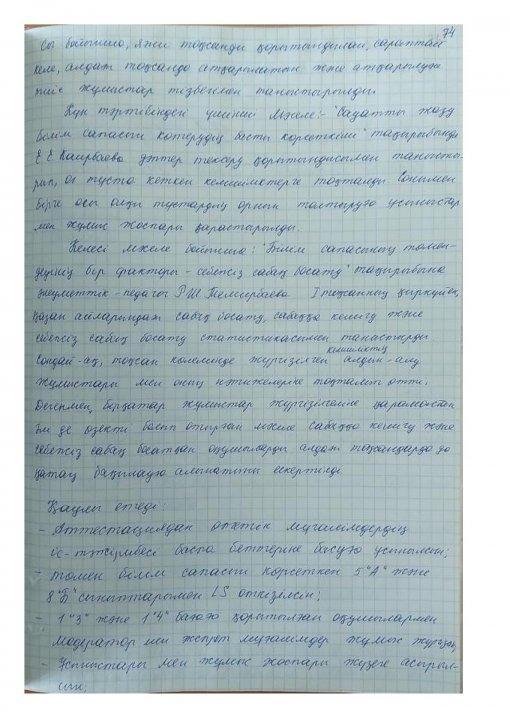 74
сы бойынша, яғни тоқсанды қорытындылап, сараптай
келе, алдағы тоқсанда атқарылатын және атқарылуға
тиіс жұмыстар тізбегімен таныстырылды.
Күн тәртібіндегі үшінші мәселе: "Сауатты жазу
білім сапасын көтерудің басты көрсеткіші" тақырыбында
Е.Е. Каирбаева дәптер тексеру қорытындысымен таныстыр-
рып, әр тұста кеткен кемшіліктерге тоқталды. Сонымен
бірге осы олқы тұстардың орнын толтыруға ұсыныстар
мен жұмыс жоспары қарастырылды.
Келесі мәселе бойынша: "Білім сапасының төмен-
деуінің бір факторы - себепсіз сабақ босату" тақырыбына
әлеуметтік-педагог Р.Ш. Темирбаева I тоқсанның қыркүйек,
қазан айларындағы сабақ босату, сабаққа кешігу және
себепсіз сабақ босату статистикасымен таныстырды.
Сондай-ақ, тоқсан көлемінде жүргізілген кемшіліктің алдын-алу
жұмыстары мен оның нәтижелеріне тоқталып өтті.
Дегенмен, бірқатар жұмыстар жүргізілгеніне қарамастан
әлі де өзекті болып отырған мәселе сабаққа кешігу және
себепсіз сабақ босатқан оқушыларды алдағы тоқсандарда да
қатаң бақылауға алынатыны ескертілді
Қаулы етеді:
- Аттестациядан өткен мұғалімдердің
іс-тәжірибесі баспа беттеріне басуға ұсынылсын;
- төмен білім сапасын көрсеткен 5 "А" және
8 "Б" сыныптарымен LS өткізілсін;
- 1 "3" және 1 "4" бағаға қорытылған оқушылармен
модератор мен эксперт мұғалімдер жұмыс жүргізсін;
- Ұсыныстары мен жұмыс жоспары жүзеге асырыл-
сын;